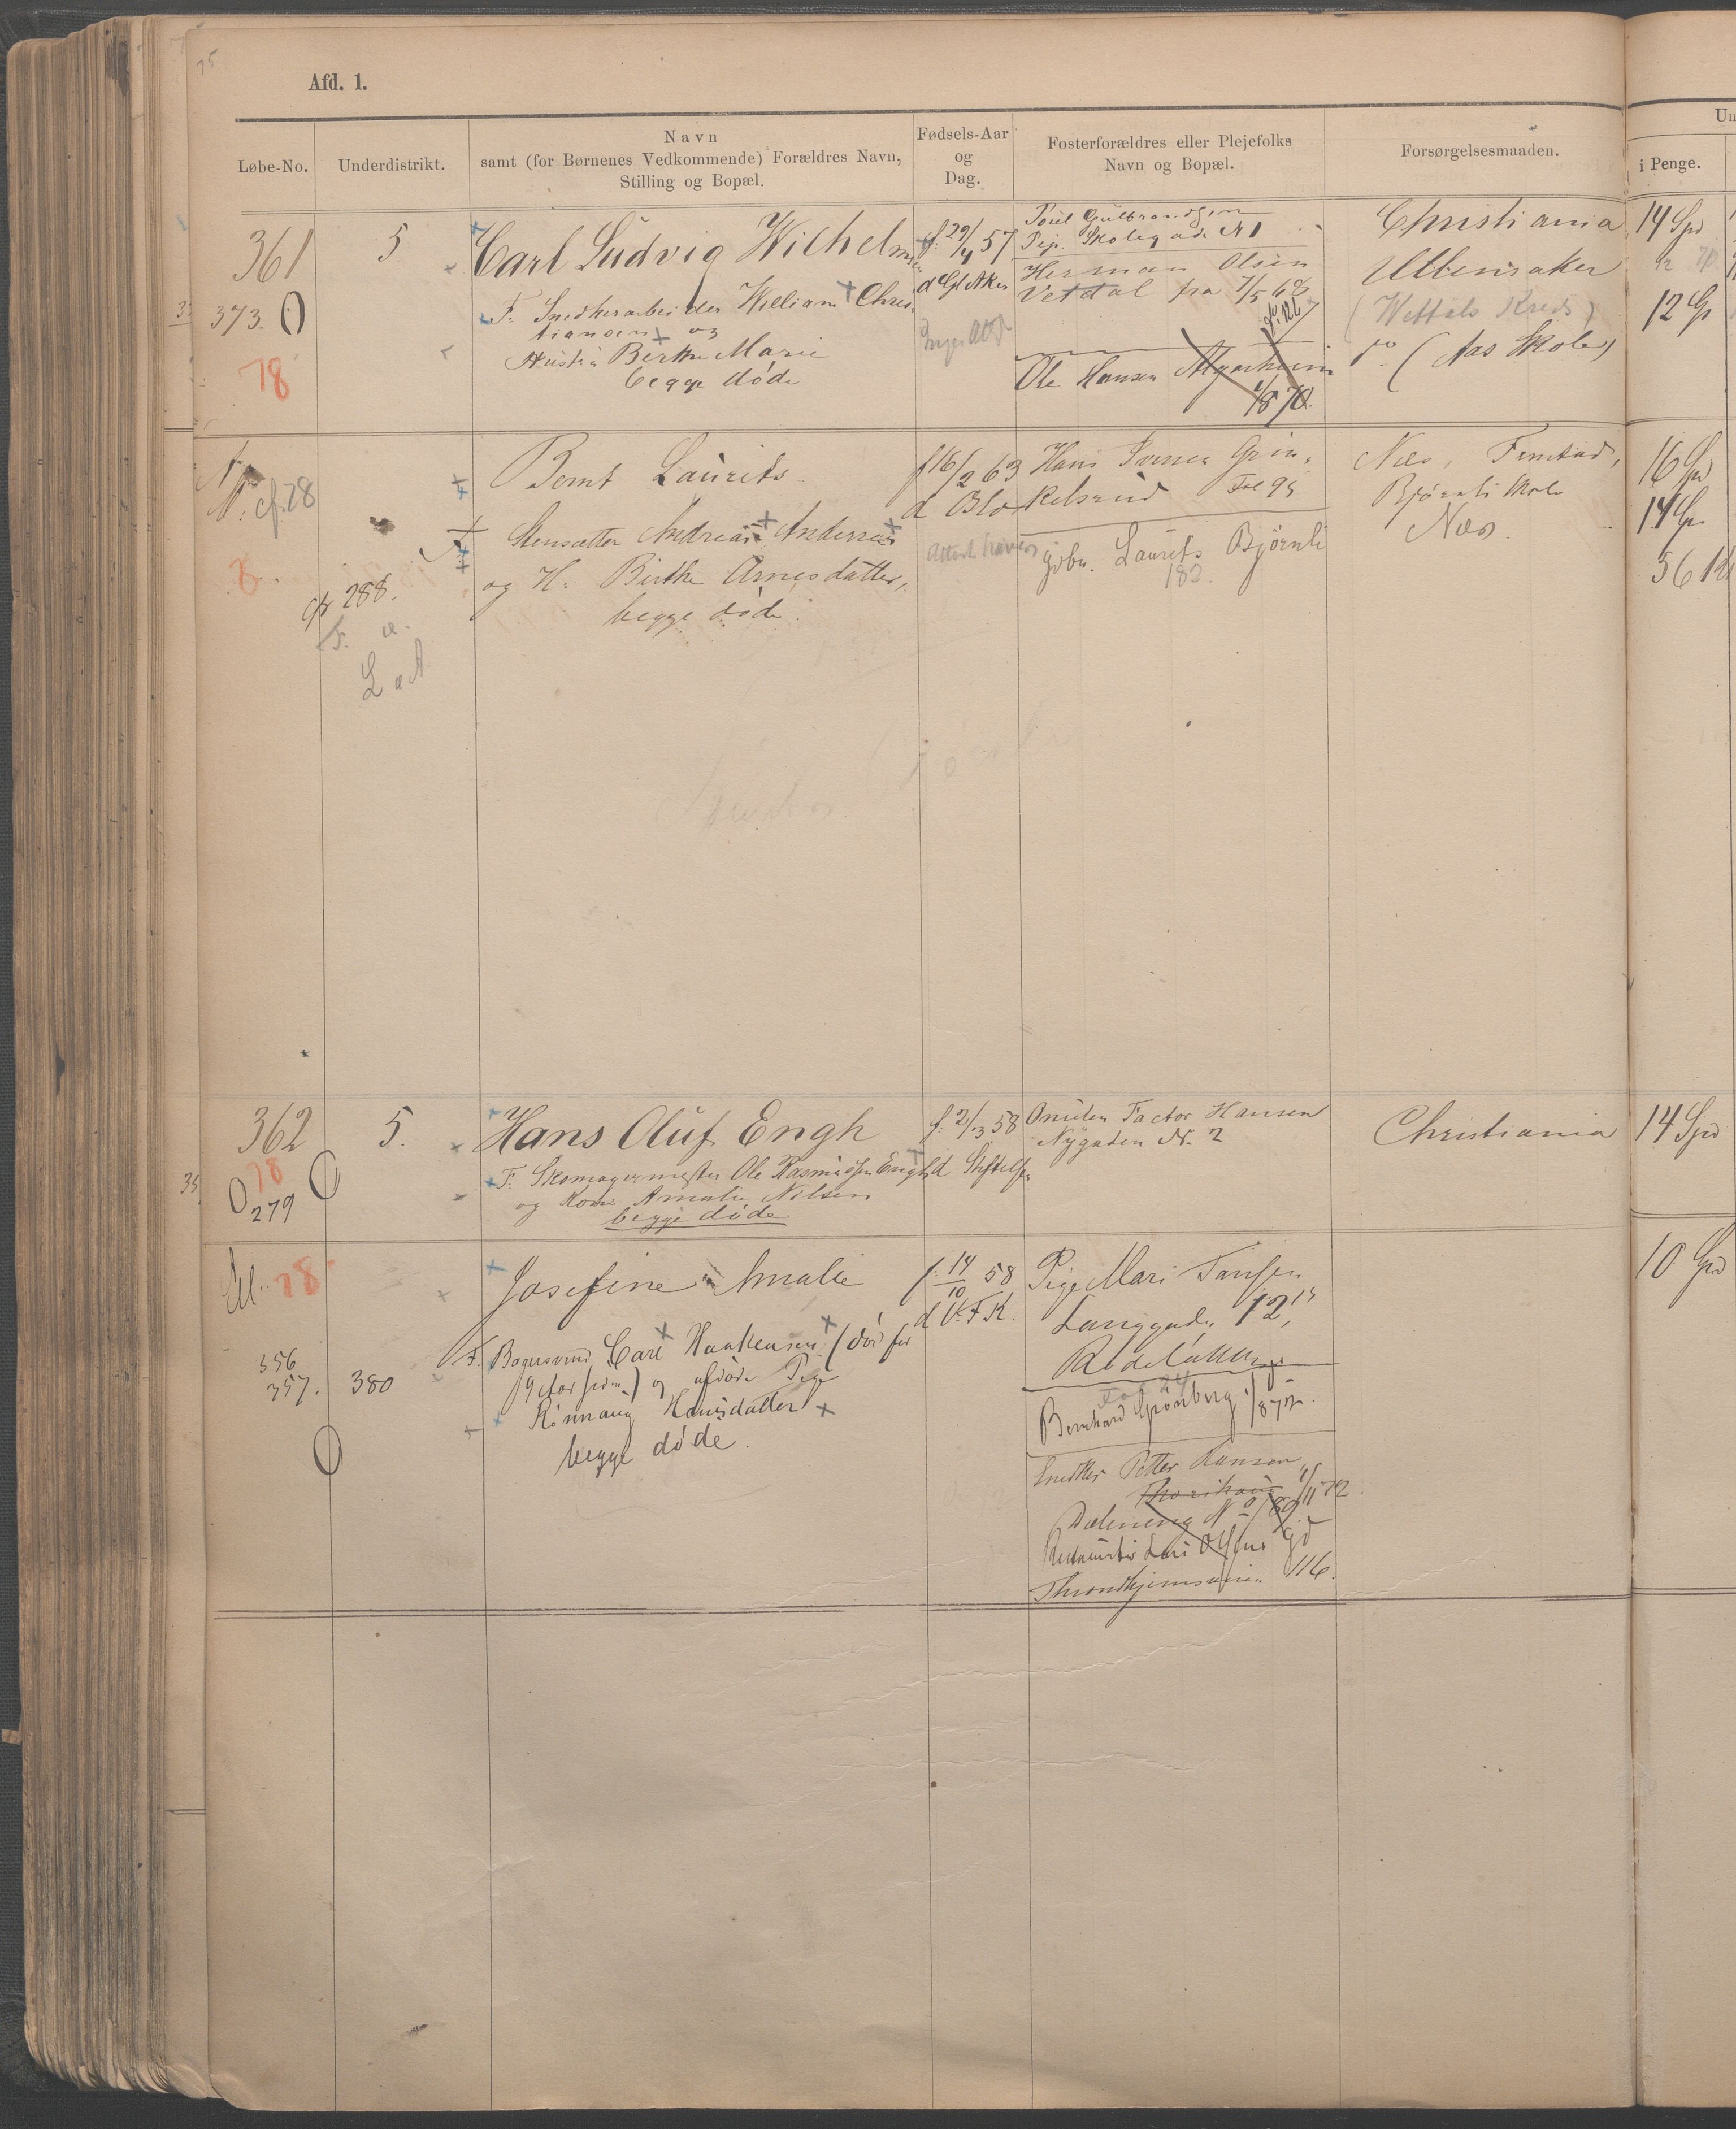 Afd. 1.
Løbe-No.
Underdistrikt.
Navn
samt (for Børnenes Vedkommende) Forældres Navn,
Stilling og Bopæl.
Fødsels-Aar
og
Dag.
Fosterforældres eller Plejefolks
Navn og Bopæl.
Forsørgelsesmaaden.
i Penge.
361
373.
78
5.
Carl Ludvig Wilhelmsen
F. Snedkerarbeider William Chris-
tiansen og
Hustru Berthe Marie
begge døde
f. 29/4 57
d Gl Aker
Poul Gulbrandsen
Pip. Skolegade N 1
Herman Olsen
Vetdal fra 1/5 68
Ole Hansen Algarheim
1/8 70.
Christiania
Ullensaker
(Wettals Kreds)
do (Aas Skole)
14 Spd
12 Sp
N. cf. 28
8.
cfr 288.
Bernt Laurits
Stensætter Andreas Andersen
og H. Birthe Arnesdatter,
begge døde.
f 16/2 63
Hans Iversen Grin-
kelsrud Fol 95
gbr. Laurits Bjørnli
182.
Næs, Fenstad,
Bjørnli Skole
Næs.
16 Spd
14 Sp.
56 Kr
362
78
279
5.
Hans Oluf Engh
F. Skomagermester Ole Rasmussen Engh
og Kone Amalie Nilsen
begge døde
f. 2/3 58
d Stiftelsen
Onklen Factor Hansen
Nygaden N. 2
Christiania
14 Spd
M. 78
356
357.
380
Josefine Amalie
F. Bagersvend Carl Haakensen (død for
9 Aar siden) og afdøde Pige
Rønnaug Hansdatter
begge døde.
f. 14/10 58
d V. F. K.
Pige Mari Jansen
Langgaden 12,
Rodeløkken
Bernhard Grønberg
Snedker Petter Hansen
1/11 72.
Dæleneng
Throndhjemsveien 116.
10 Spd